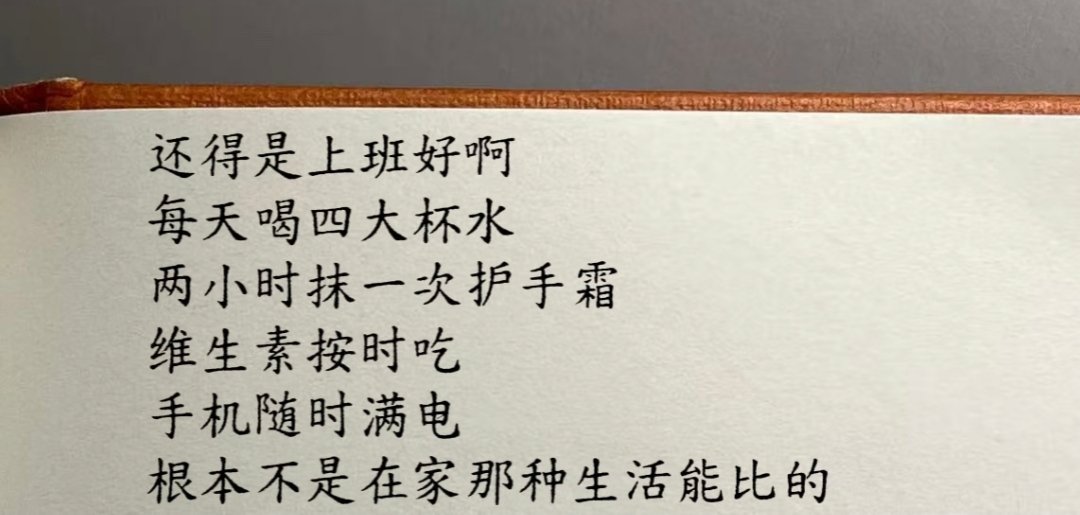 还得是上班好啊
每天喝四大杯水
两小时抹一次护手霜
维生素按时吃
手机随时满电
根本不是在家那种生活能比的